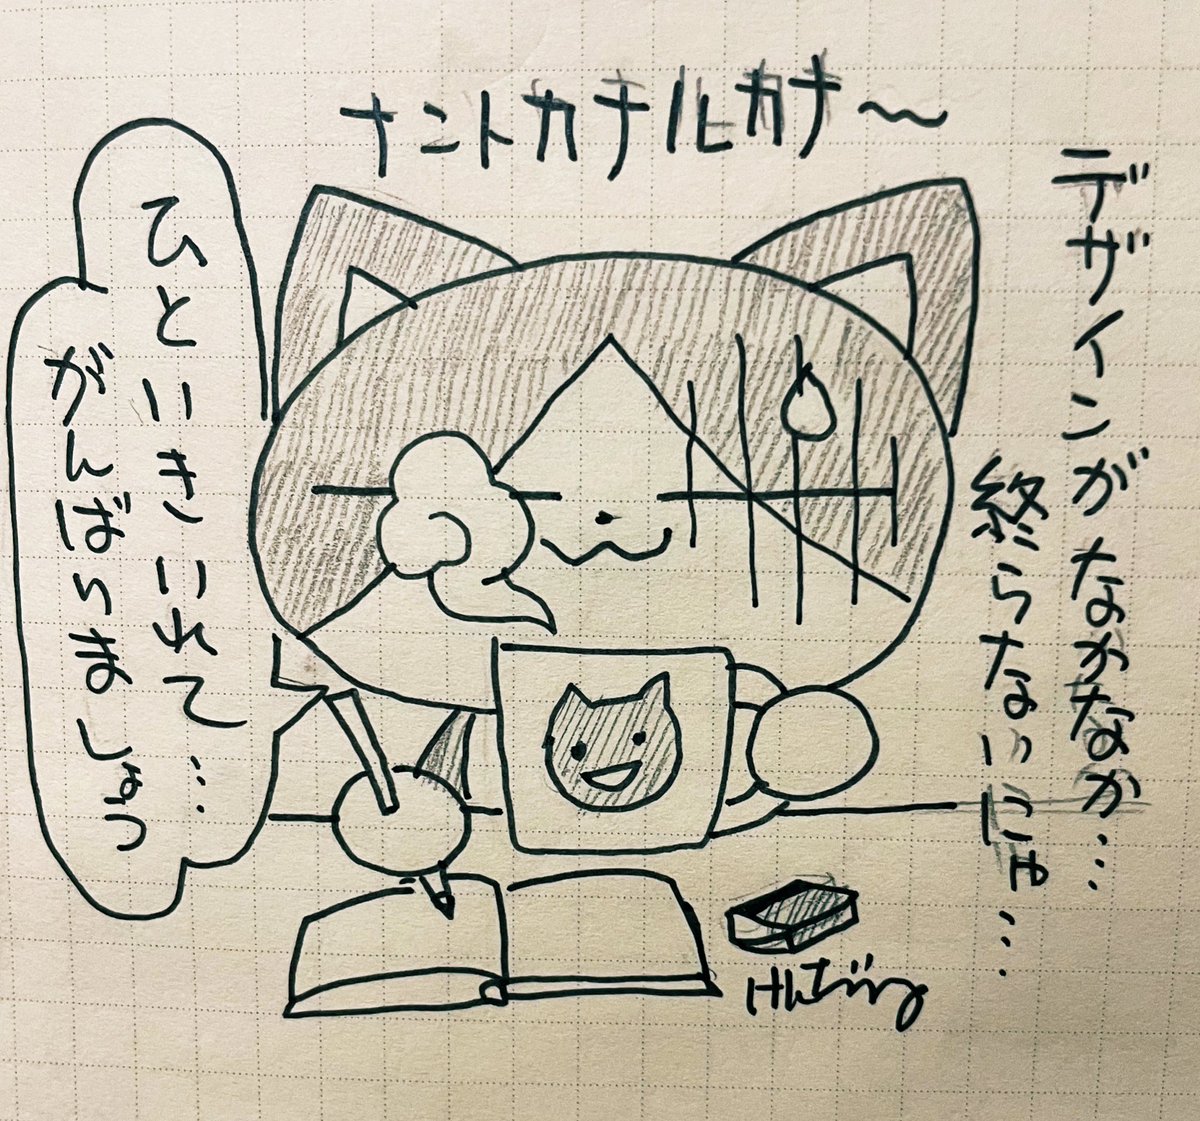 ナントカナルカナ〜
デザインが なかなか…
終らないにゃ…
ひといきいれて…
がんばりましょう